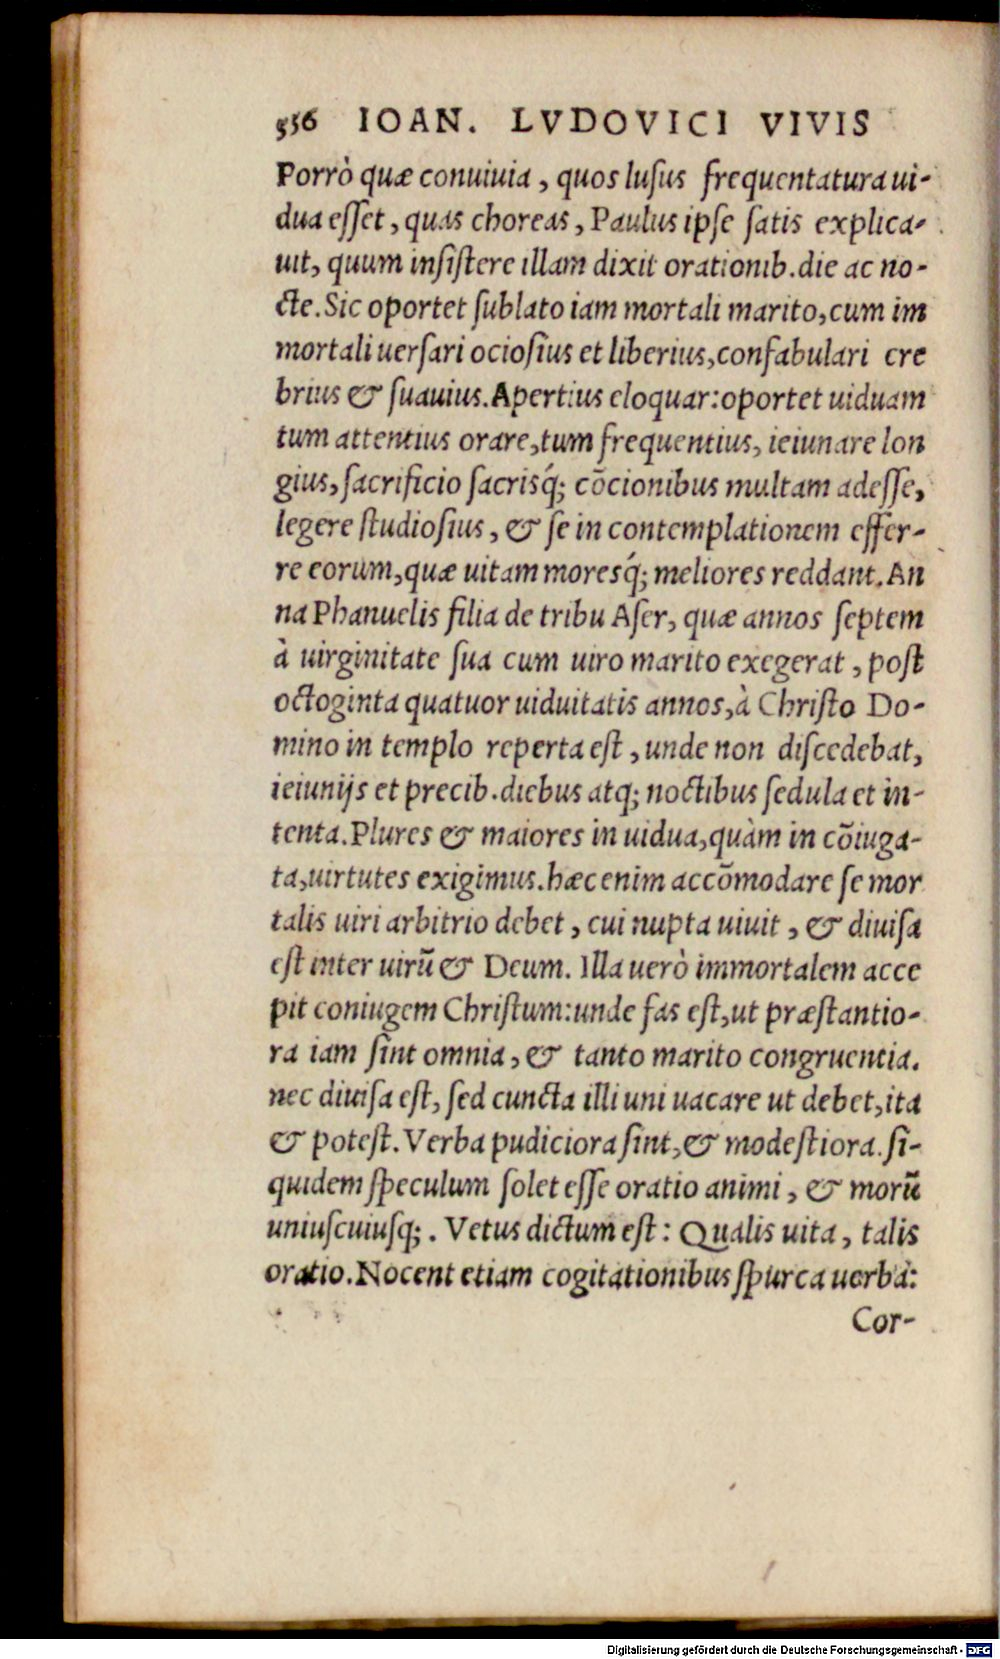 356 IOAN. LVDOVICI VIVIS
Porrò quæ conuiuia, quos lusus frequentatura ui-
dua esset, quas choreas, Paulus ipse satis explica-
uit, quum insistere illam dixit orationib. die ac no-
cte. Sic oportet sublato iam mortali marito, cum im
mortali uersari ociosius et liberius, confabulari cre
brius & suauius. Apertius eloquar: oportet uiduam
tum attentius orare, tum frequentius, ieiunare lon
gius, sacrificio sacrisq́; cōcionibus multam adesse,
legere studiosius, & se in contemplationem effer-
re eorum, quæ uitam moresq́; meliores reddant. An
na Phanuelis filia de tribu Aser, quæ annos septem
à uirginitate sua cum uiro marito exegerat, post
octoginta quatuor uiduitatis annos, à Christo Do-
mino in templo reperta est, unde non discedebat,
ieiunijs et precib. diebus atq; noctibus sedula et in-
tenta. Plures & maiores in uidua, quàm in cōiuga-
ta, uirtutes exigimus. hæc enim accōmodare se mor
talis uiri arbitrio debet, cui nupta uiuit, & diuisa
est inter uirū & Deum. Illa uerò immortalem acce
pit coniugem Christum: unde fas est, ut præstantio-
ra iam sint omnia, & tanto marito congruentia.
nec diuisa est, sed cuncta illi uni uacare ut debet, ita
& potest. Verba pudiciora sint, & modestiora. si-
quidem speculum solet esse oratio animi, & morū
uniuscuiusq;. Vetus dictum est: Qualis uita, talis
oratio. Nocent etiam cogitationibus spurca uerba:
Cor-
Digitalisierung gefördert durch die Deutsche Forschungsgemeinschaft - DFG